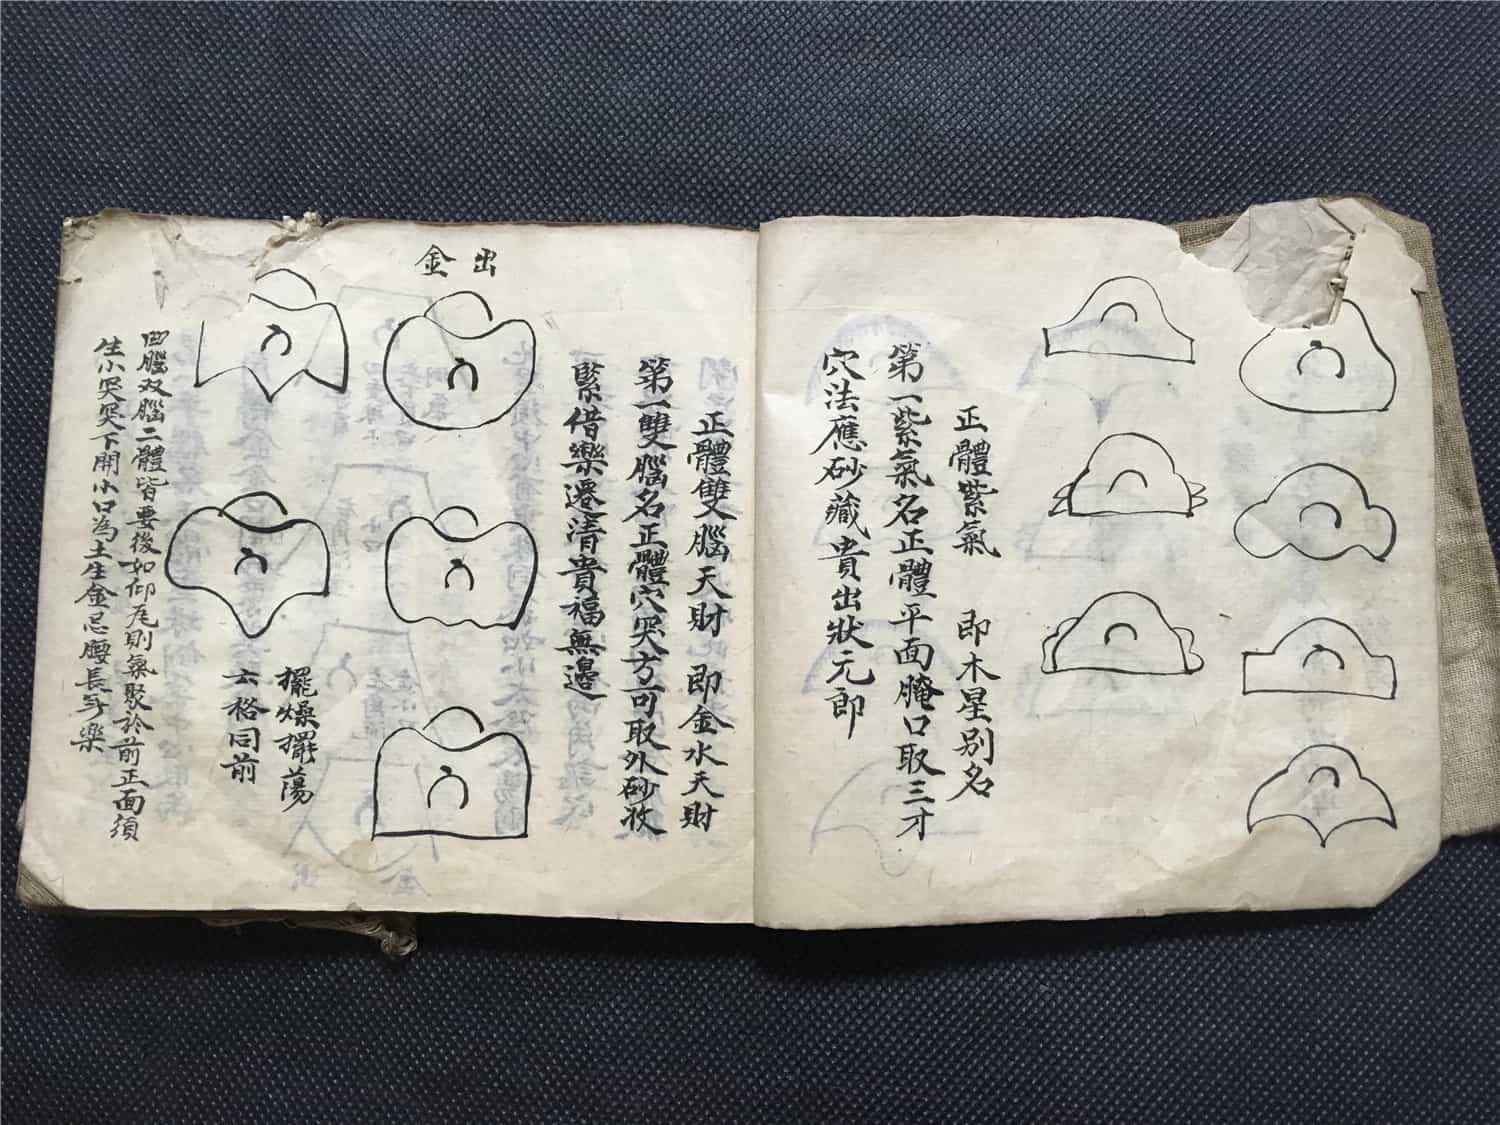 正體紫氣　即木星别名
第一紫氣名正體平面腌口取三才
穴法應砂藏貴出狀元郎
正體雙腦天財　即金水天財
第一雙腦名正體穴哭方可取外砂收
緊借樂遷清貴福無邊
出金
擺燥擺蕩
六格同前
凹腦双腦二體皆要後如仰瓦則氣聚於前正面須
生小哭哭下開小口為土生金忌腰長与樂